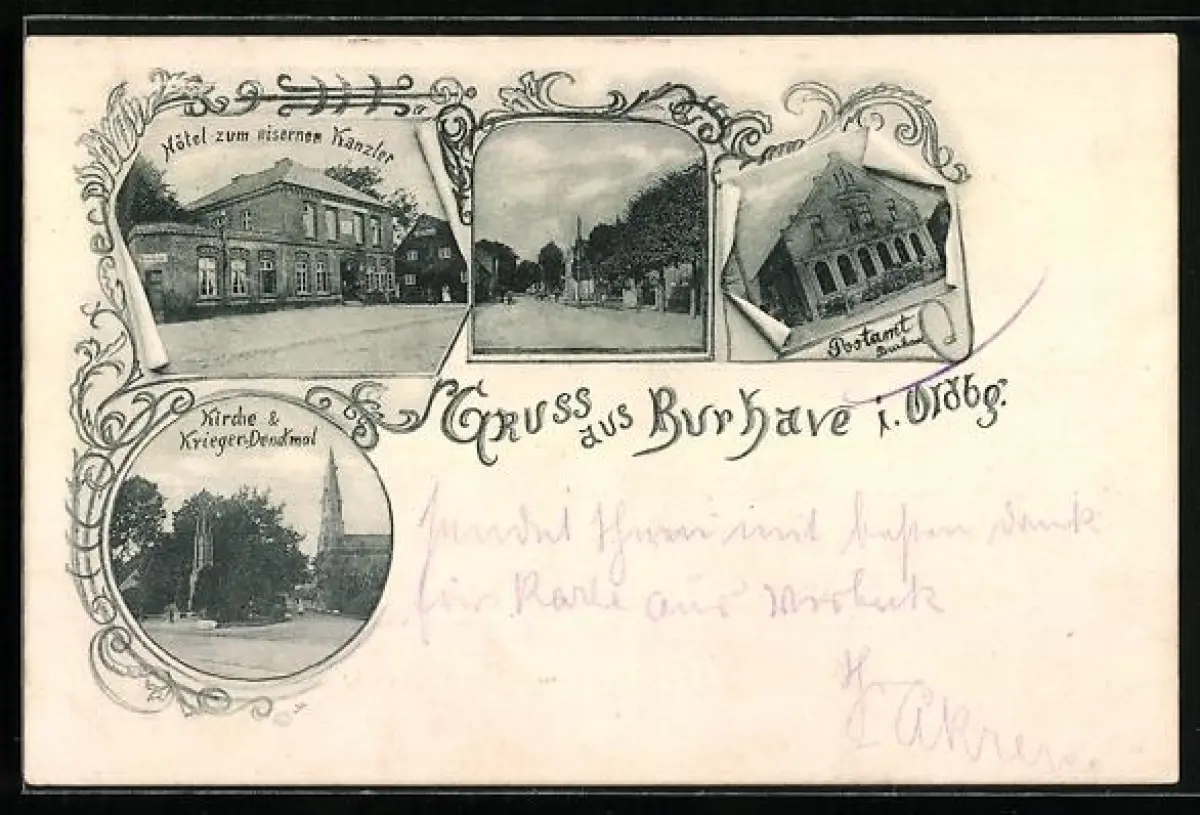 Hôtel zum eisernen Kanzler
Postamt
Burhave
Kirche &
Krieger-Denkmal
Gruss aus Burhave i. Oldbg.
sendet Ihnen mit besten Dank
für Karte aus